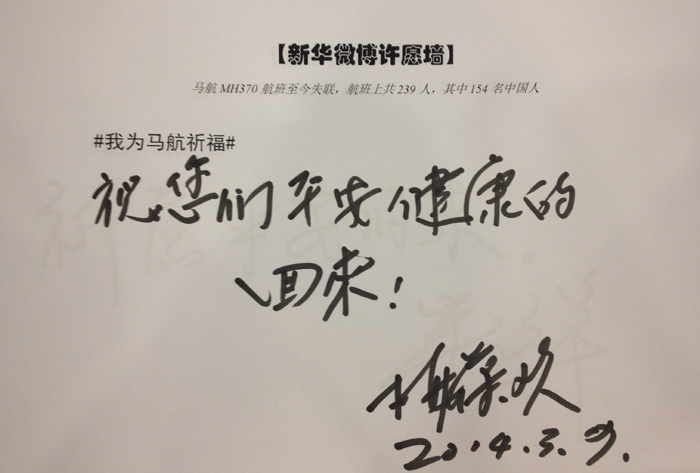 【新华微博许愿墙】
马航 MH370 航班至今失联，航班上共 239 人，其中 154 名中国人
#我为马航祈福#
祝您们平安健康的
回来！
2014.3.9.